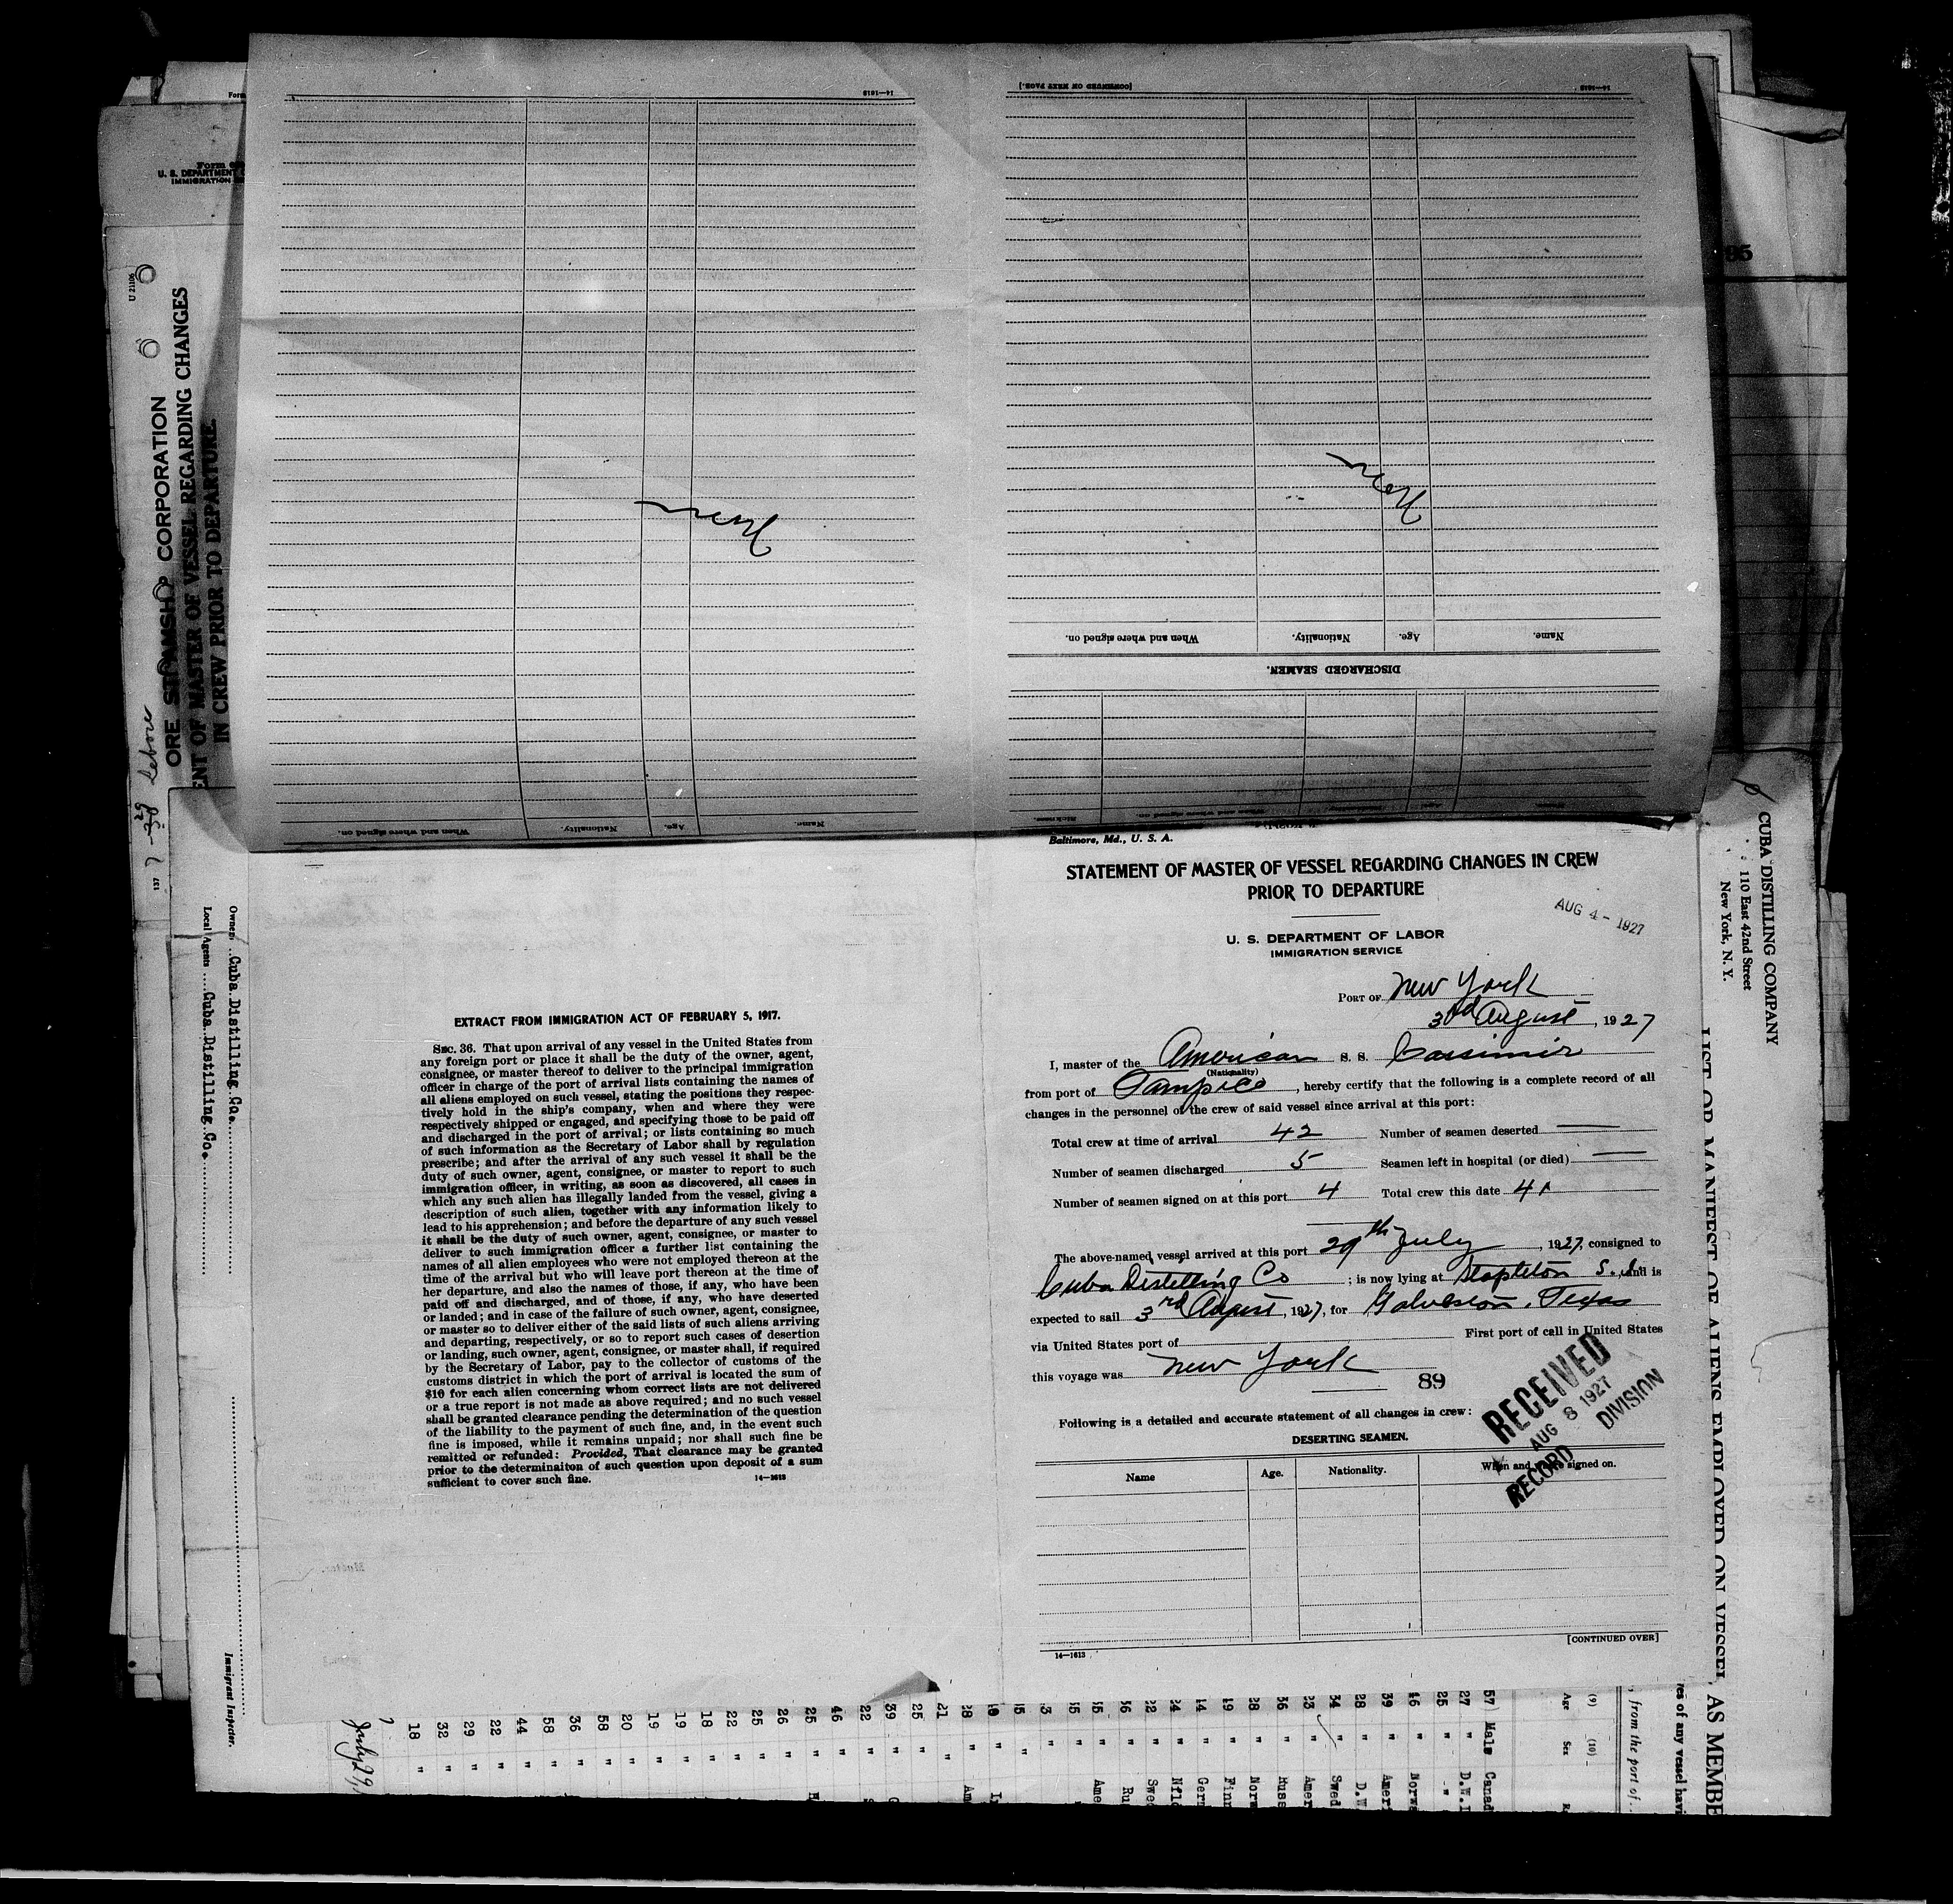 14—1613
[CONTINUED ON NEXT PAGE.]
14—1613
Form
U. S. DEPARTMENT
IMMIGRATION
U 21106
ORE STEAMSHIP CORPORATION
ENT OF MASTER OF VESSEL REGARDING CHANGES
IN CREW PRIOR TO DEPARTURE.
95
None
None
When and where signed on. Nationality. Age. Name.
DISCHARGED SEAMEN.
When and where signed on. Nationality. Age. Name.
Owners Cuba Distilling Co.
Local Agents Cuba Distilling Co.
Immigrant Inspector.
EXTRACT FROM IMMIGRATION ACT OF FEBRUARY 5, 1917.
SEC. 36. That upon arrival of any vessel in the United States from
any foreign port or place it shall be the duty of the owner, agent,
consignee, or master thereof to deliver to the principal immigration
officer in charge of the port of arrival lists containing the names of
all aliens employed on such vessel, stating the positions they respec-
tively hold in the ship's company, when and where they were
respectively shipped or engaged, and specifying those to be paid off
and discharged in the port of arrival; or lists containing so much
of such information as the Secretary of Labor shall by regulation
prescribe; and after the arrival of any such vessel it shall be the
duty of such owner, agent, consignee, or master to report to such
immigration officer, in writing, as soon as discovered, all cases in
which any such alien has illegally landed from the vessel, giving a
description of such alien, together with any information likely to
lead to his apprehension; and before the departure of any such vessel
it shall be the duty of such owner, agent, consignee, or master to
deliver to such immigration officer a further list containing the
names of all alien employees who were not employed thereon at the
time of the arrival but who will leave port thereon at the time of
her departure, and also the names of those, if any, who have been
paid off and discharged, and of those, if any, who have deserted
or landed; and in case of the failure of such owner, agent, consignee,
or master so to deliver either of the said lists of such aliens arriving
and departing, respectively, or so to report such cases of desertion
or landing, such owner, agent, consignee, or master shall, if required
by the Secretary of Labor, pay to the collector of customs of the
customs district in which the port of arrival is located the sum of
$10 for each alien concerning whom correct lists are not delivered
or a true report is not made as above required; and no such vessel
shall be granted clearance pending the determination of the question
of the liability to the payment of such fine, and, in the event such
fine is imposed, while it remains unpaid; nor shall such fine be
remitted or refunded: Provided, That clearance may be granted
prior to the determinaiton of such question upon deposit of a sum
sufficient to cover such fine. 14—1613
Baltimore, Md., U. S. A.
STATEMENT OF MASTER OF VESSEL REGARDING CHANGES IN CREW
PRIOR TO DEPARTURE
AUG 4 - 1927
U. S. DEPARTMENT OF LABOR
IMMIGRATION SERVICE
PORT OF New York
3rd August, 1927
I, master of the American S. S. Cassimir
(Nationality)
from port of Tampico, hereby certify that the following is a complete record of all
changes in the personnel of the crew of said vessel since arrival at this port:
Total crew at time of arrival 42 Number of seamen deserted —
Number of seamen discharged 5 Seamen left in hospital (or died) —
Number of seamen signed on at this port 4 Total crew this date 41
The above-named vessel arrived at this port 29th July, 1927, consigned to
Cuba Distilling Co; is now lying at Stapleton S. I. and is
expected to sail 3rd August, 1927, for Galveston, Texas
via United States port of First port of call in United States
this voyage was New York
89
RECEIVED
AUG 8 1927
RECORD DIVISION
Following is a detailed and accurate statement of all changes in crew:
DESERTING SEAMEN.
Name Age. Nationality. When and where signed on.
[CONTINUED OVER]
14—1613
CUBA DISTILLING COMPANY
110 East 42nd Street
New York, N. Y.
LIST OR MANIFEST OF ALIENS EMPLOYED ON VESSEL AS MEMBE
res of any vessel havi
, from the port of
(9) (10)
Age Sex
57 Male Canad
27 " D.W.I
25 " "
46 " Norwa
39 " Ameri
28 " D.W
34 " Swed
23 " Amer
36 " Russ
28 " Norw
19 " Finn
14 " Germ
24 " Nfld
22 " Swed
56 " Ru
55 " Ame
28 " Am
21 "
25 "
39 "
22 "
46 "
25 "
26 "
25 "
22 "
18 "
19 "
19 "
20 "
58 "
36 "
58 "
44 "
22 "
29 "
32 "
18 "
July 29